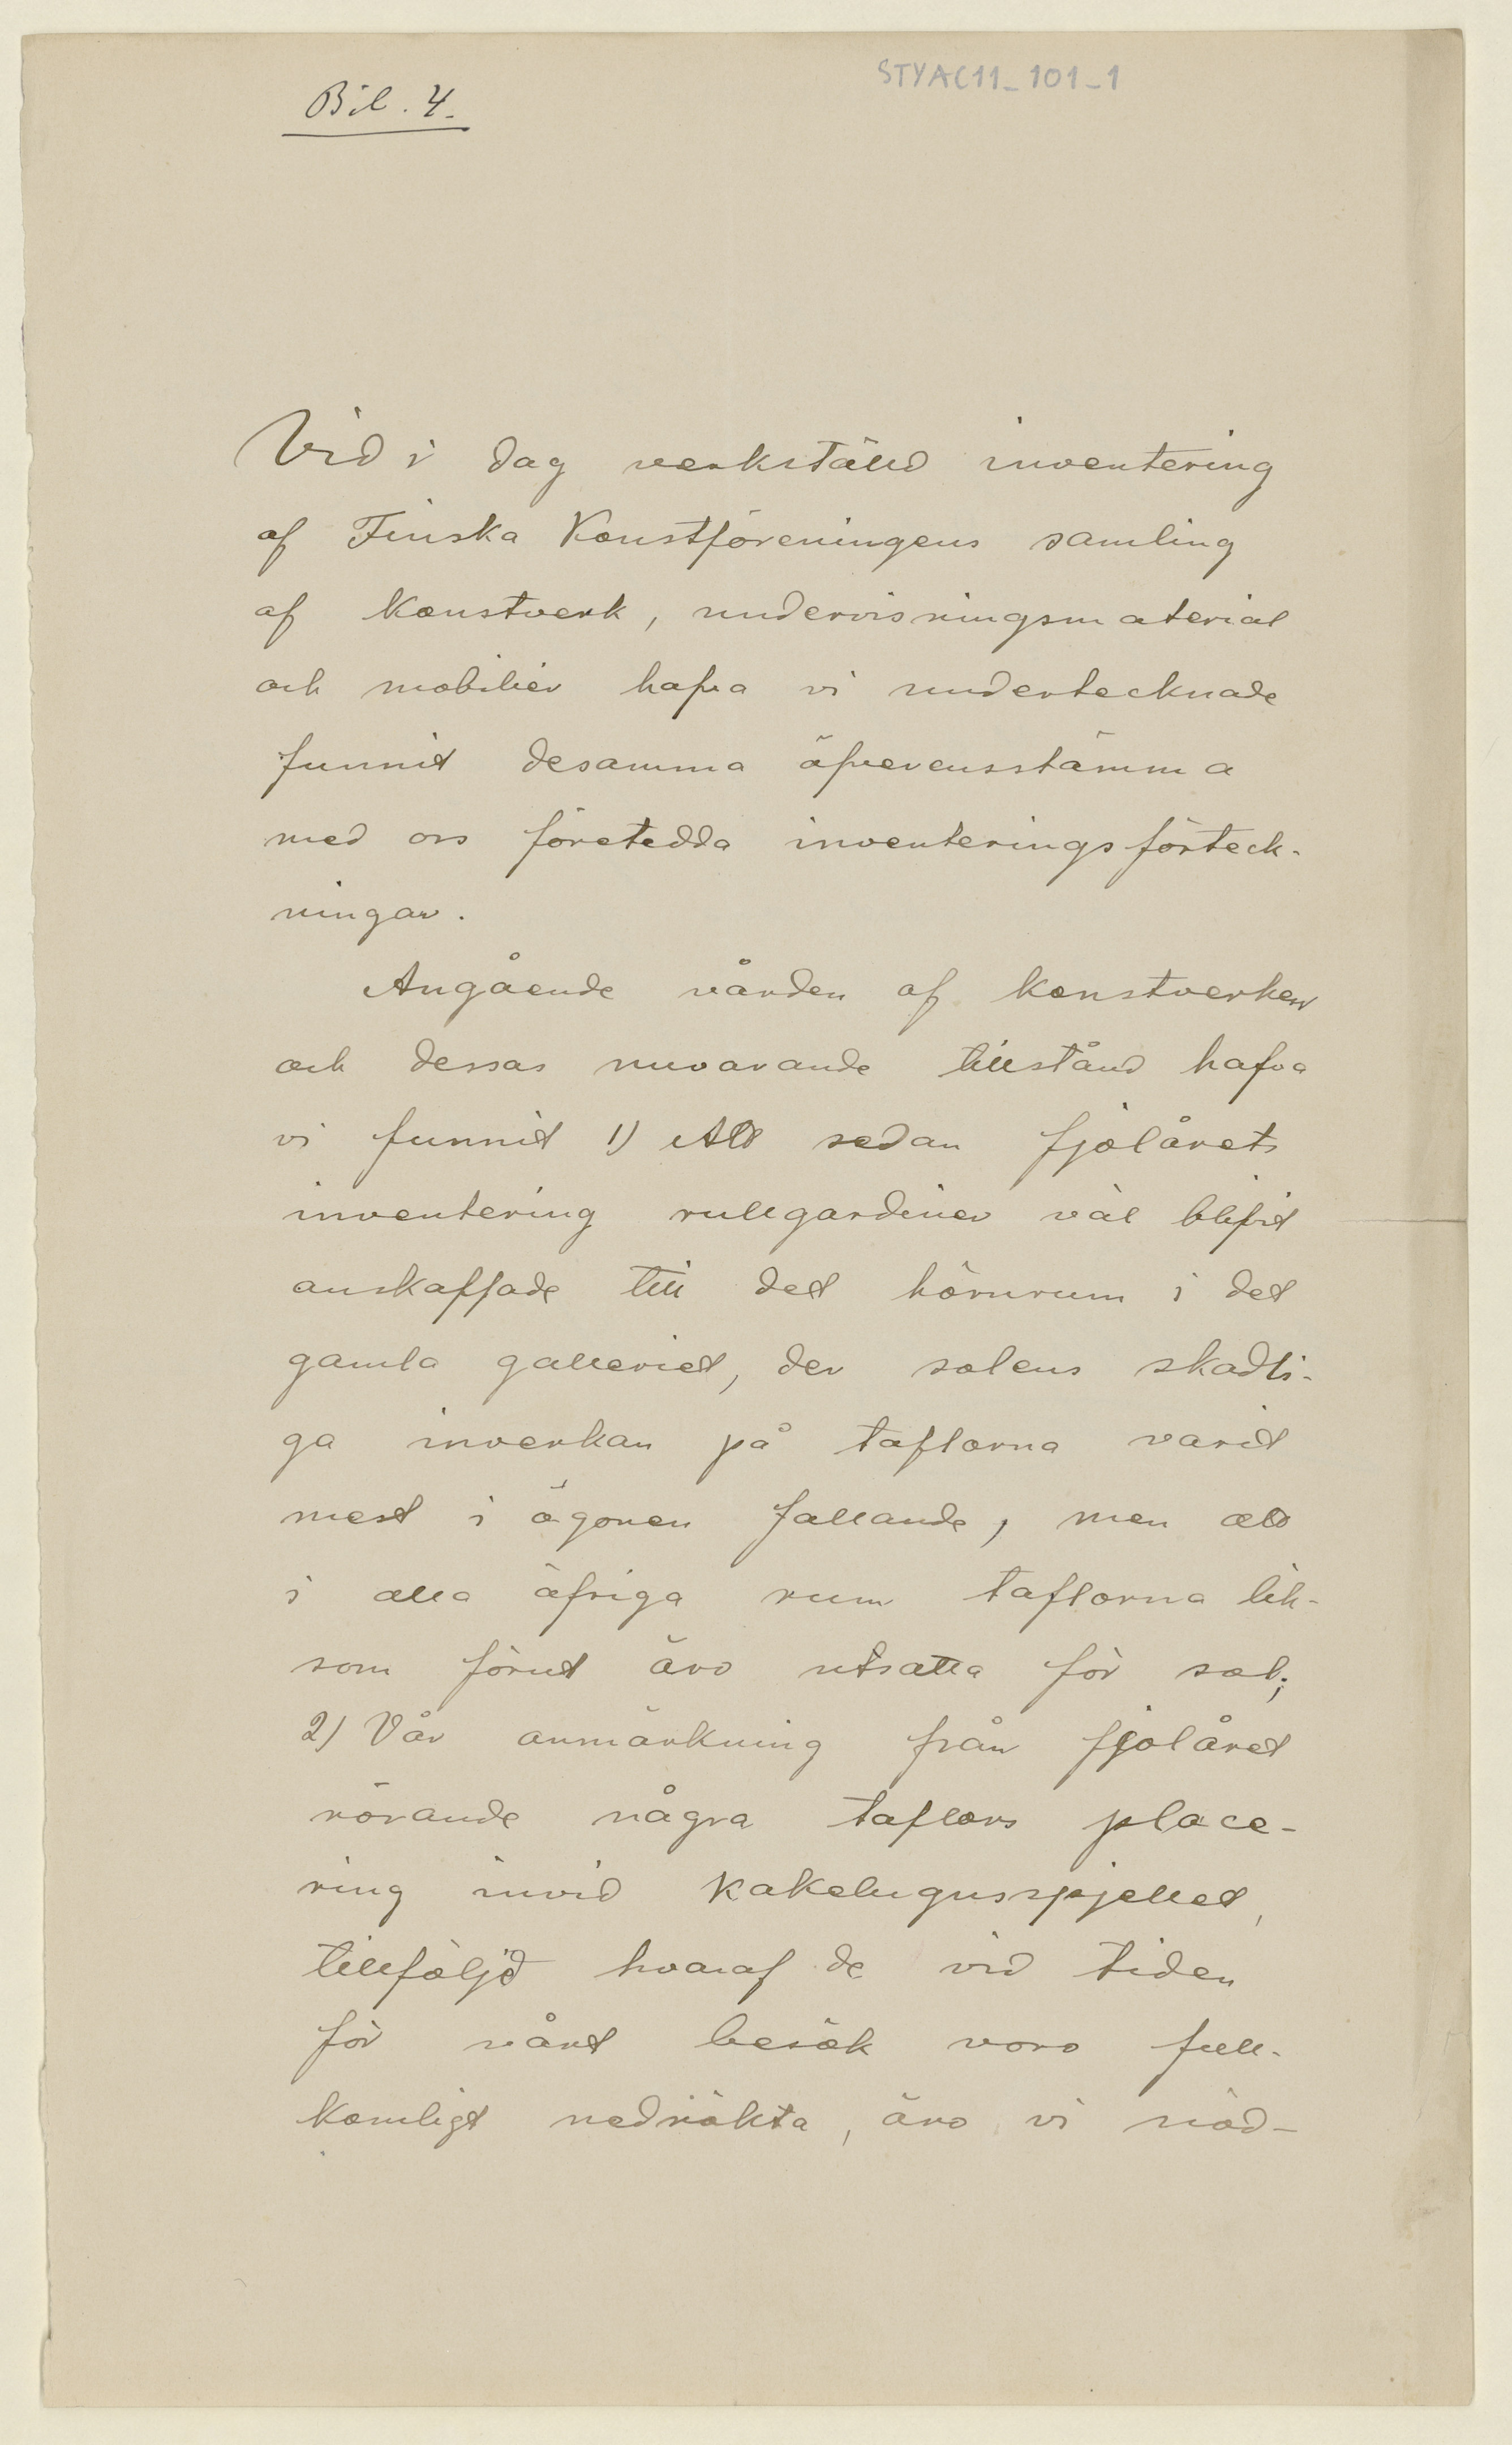 STYAC11_101_1
Bil. 4.
Vid i dag verkstäld inventering
af Finska Konstföreningens samling
af konstverk, undervisningsmaterial
och mobilier hafva vi undertecknade
funnit desamma öfverensstämma
med oss företedda inventeringsförteck-
ningar.
Angående vården af konstverken
och dessas nuvarande tillstånd hafva
vi funnit 1) Att sedan fjolårets
inventering rullgardiner väl blifvit
anskaffade till det hörnrum i det
gamla galleriet, der solens skadli-
ga inverkan på taflorna varit
mest i ögonen fallande, men att
i alla öfriga rum taflorna lik-
som förut äro utsatta för sol;
2) Vår anmärkning från fjolåret
rörande några taflors place-
ring invid kakelugnsspjellet,
tillföljd hvaraf de vid tiden
för vårt besök voro full-
komligt nedrökta, äro vi nöd-